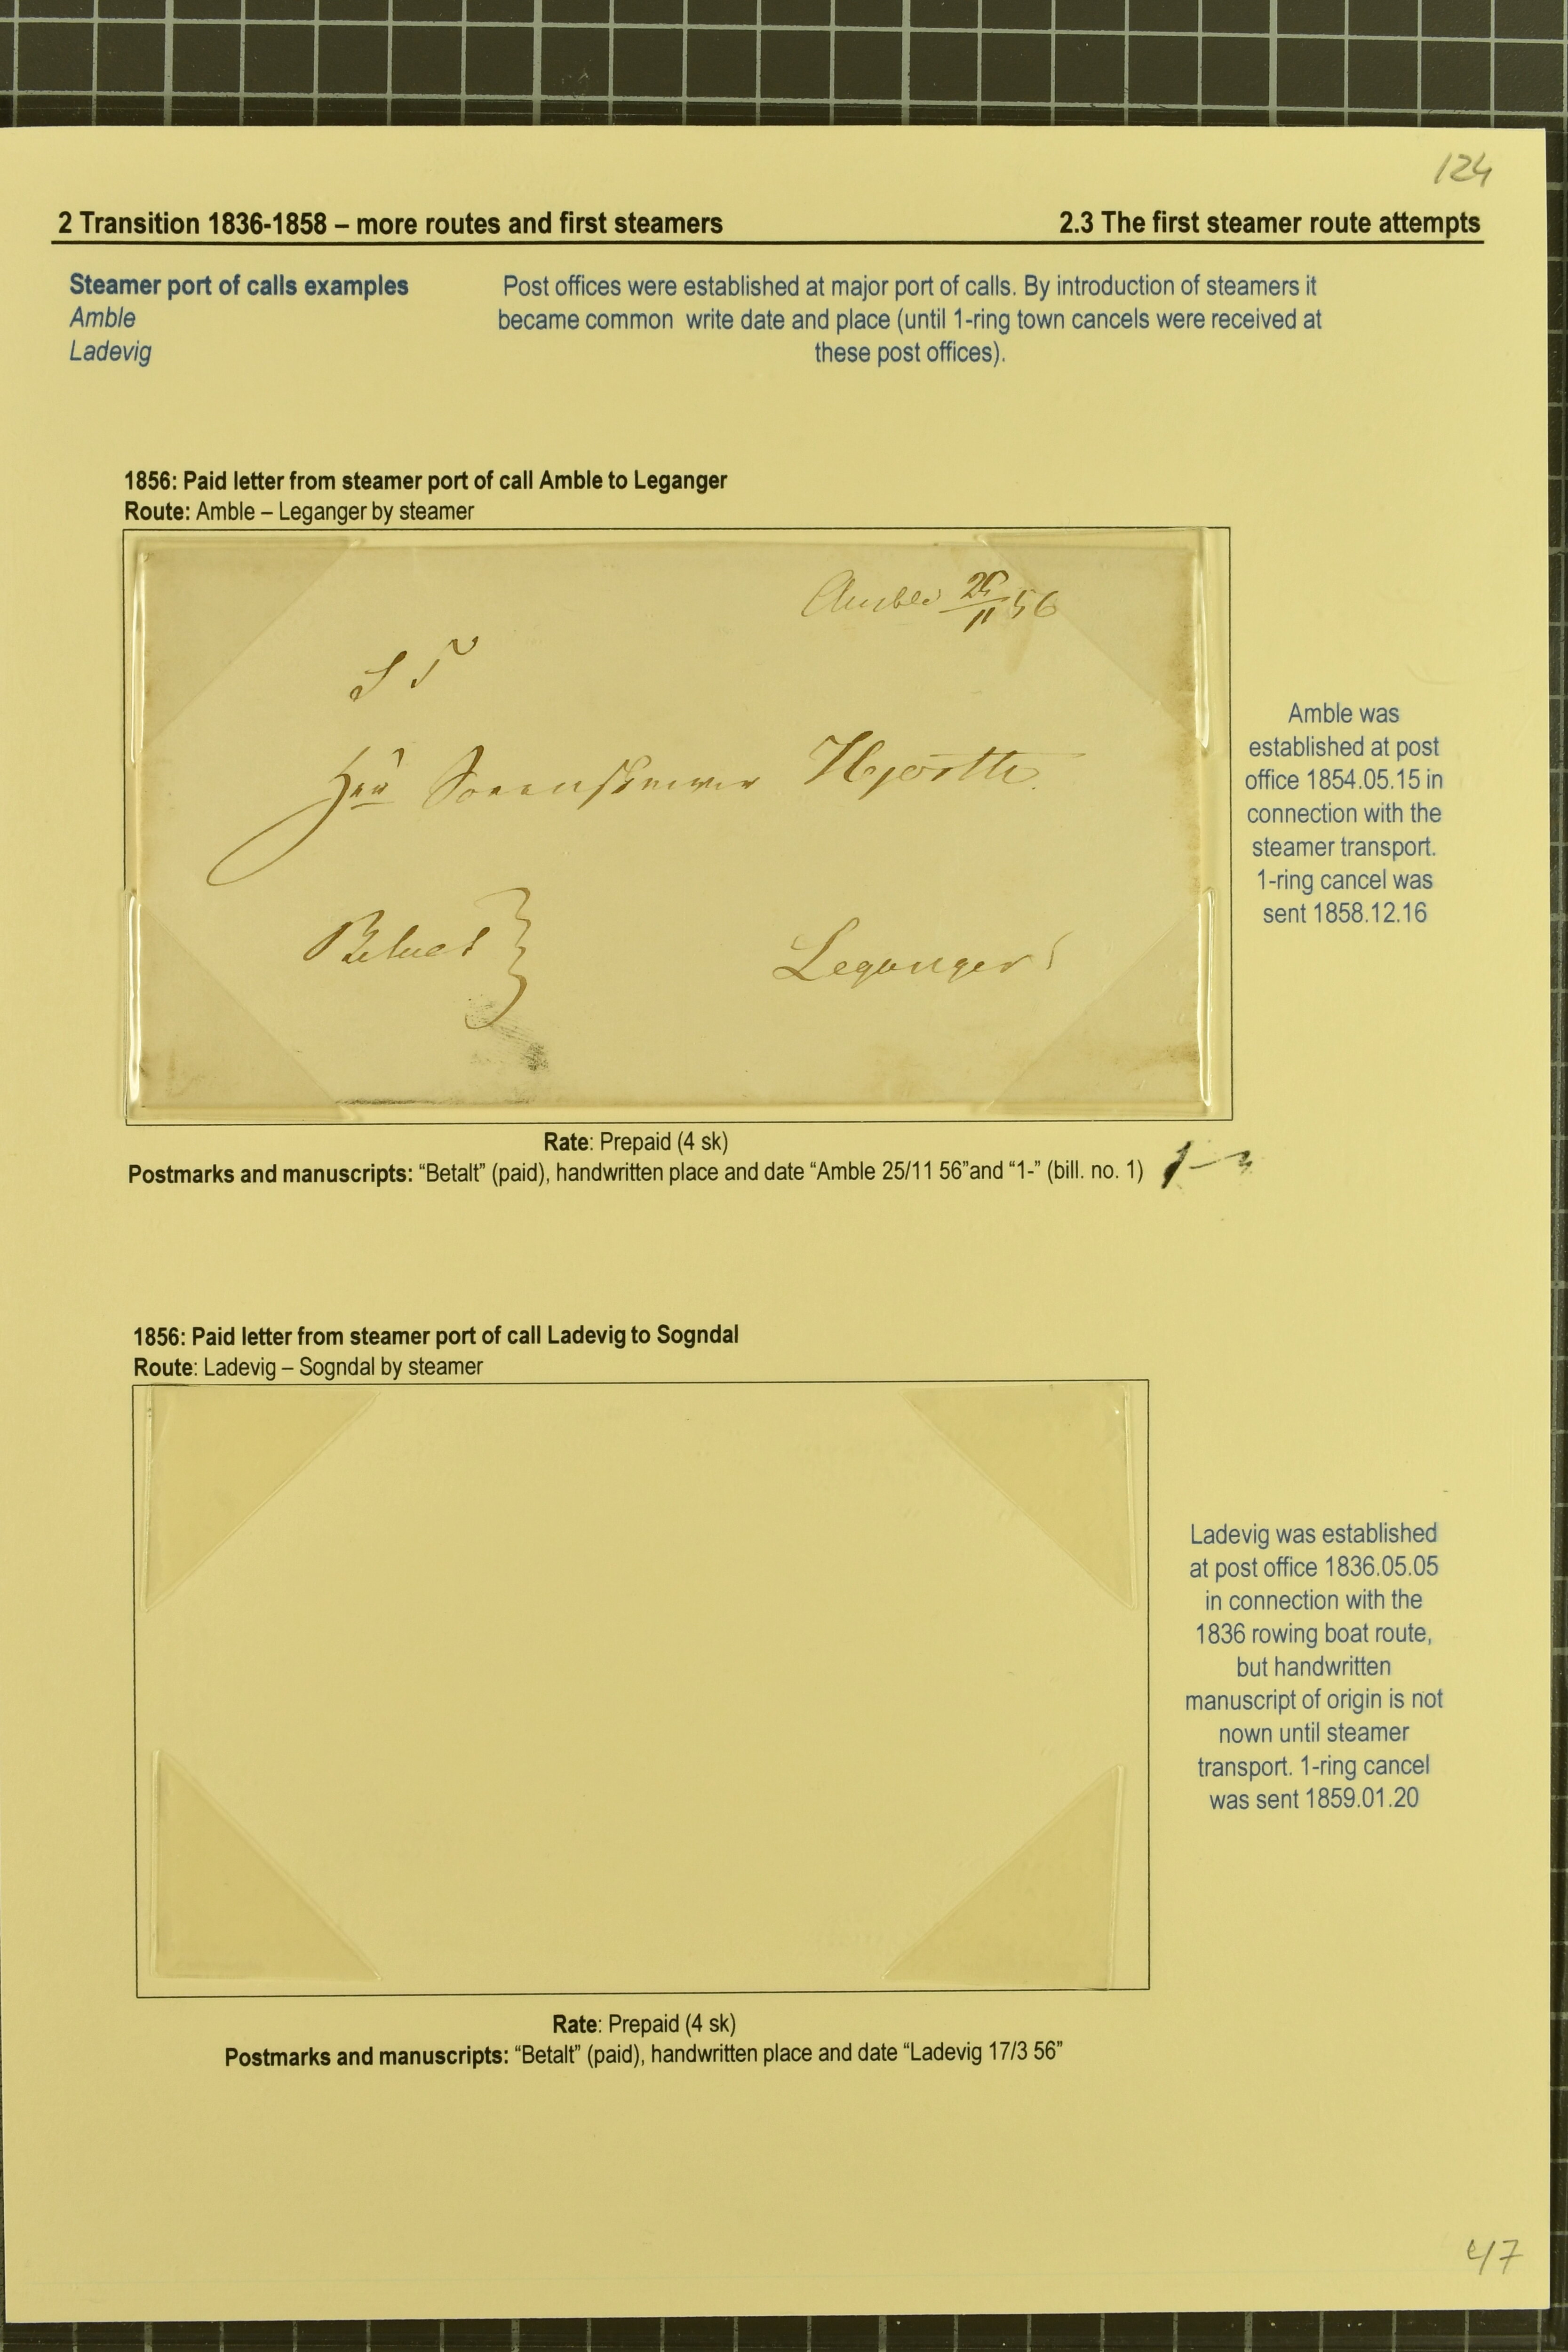 124
2 Transition 1836-1858 – more routes and first steamers 2.3 The first steamer route attempts
Steamer port of calls examples
Amble
Ladevig
Post offices were established at major port of calls. By introduction of steamers it
became common write date and place (until 1-ring town cancels were received at
these post offices).
1856: Paid letter from steamer port of call Amble to Leganger
Route: Amble – Leganger by steamer
Amble 25/11 56
S T
Herr Sorenskriver Hjorth
Betalt
Leganger
Amble was
established at post
office 1854.05.15 in
connection with the
steamer transport.
1-ring cancel was
sent 1858.12.16
Rate: Prepaid (4 sk)
Postmarks and manuscripts: “Betalt” (paid), handwritten place and date “Amble 25/11 56”and “1-” (bill. no. 1) 1-
1856: Paid letter from steamer port of call Ladevig to Sogndal
Route: Ladevig – Sogndal by steamer
Ladevig was established
at post office 1836.05.05
in connection with the
1836 rowing boat route,
but handwritten
manuscript of origin is not
nown until steamer
transport. 1-ring cancel
was sent 1859.01.20
Rate: Prepaid (4 sk)
Postmarks and manuscripts: “Betalt” (paid), handwritten place and date “Ladevig 17/3 56”
47